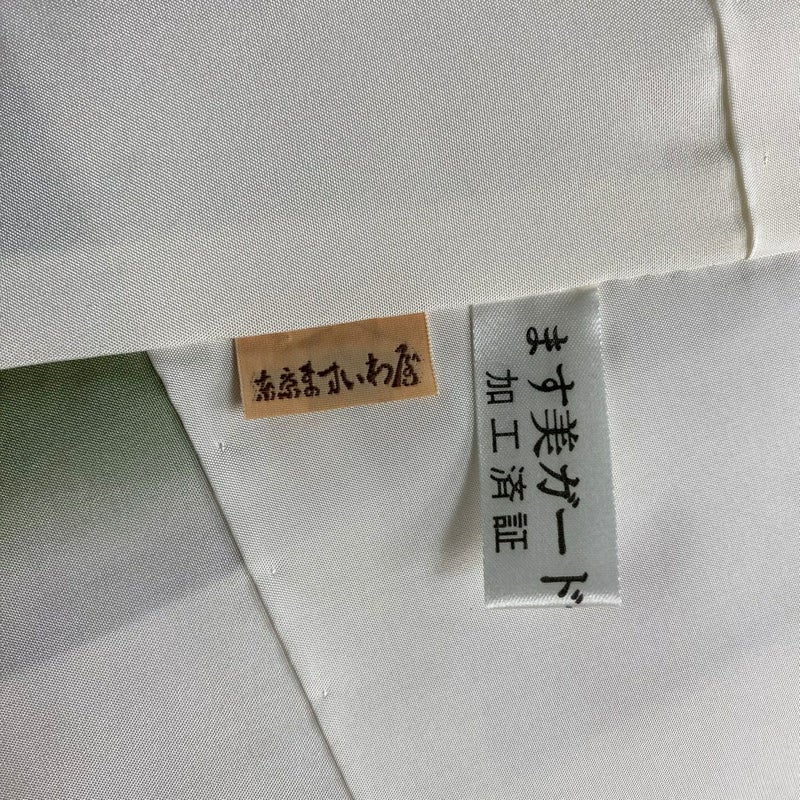 東京ますいわ屋
ます美ガード
加工済証